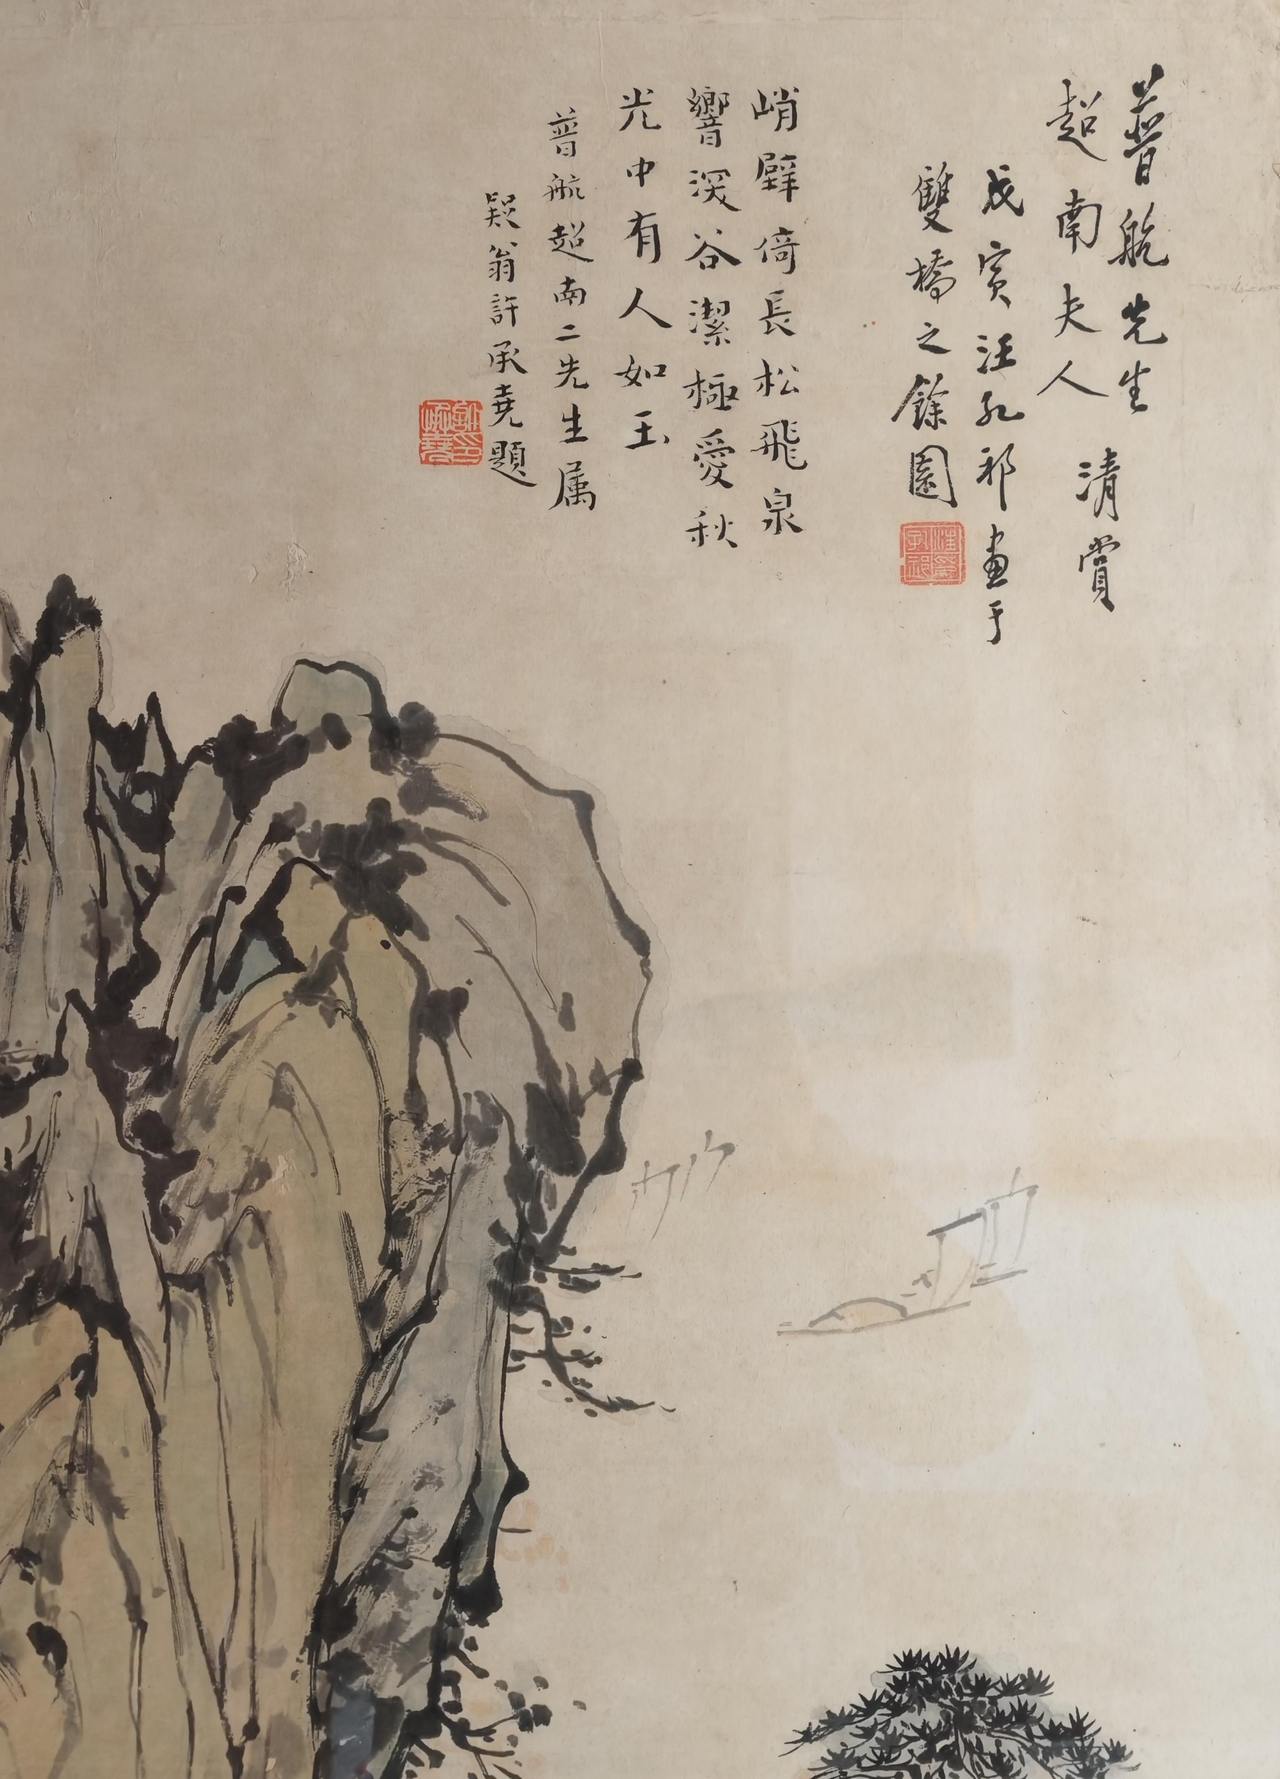 普航先生
超南夫人 清賞
戊寅汪孔祁畫于
雙橋之餘園
峭壁倚長松飛泉
響深谷潔極愛秋
光中有人如玉
普航超南二先生属
疑翁許承堯題